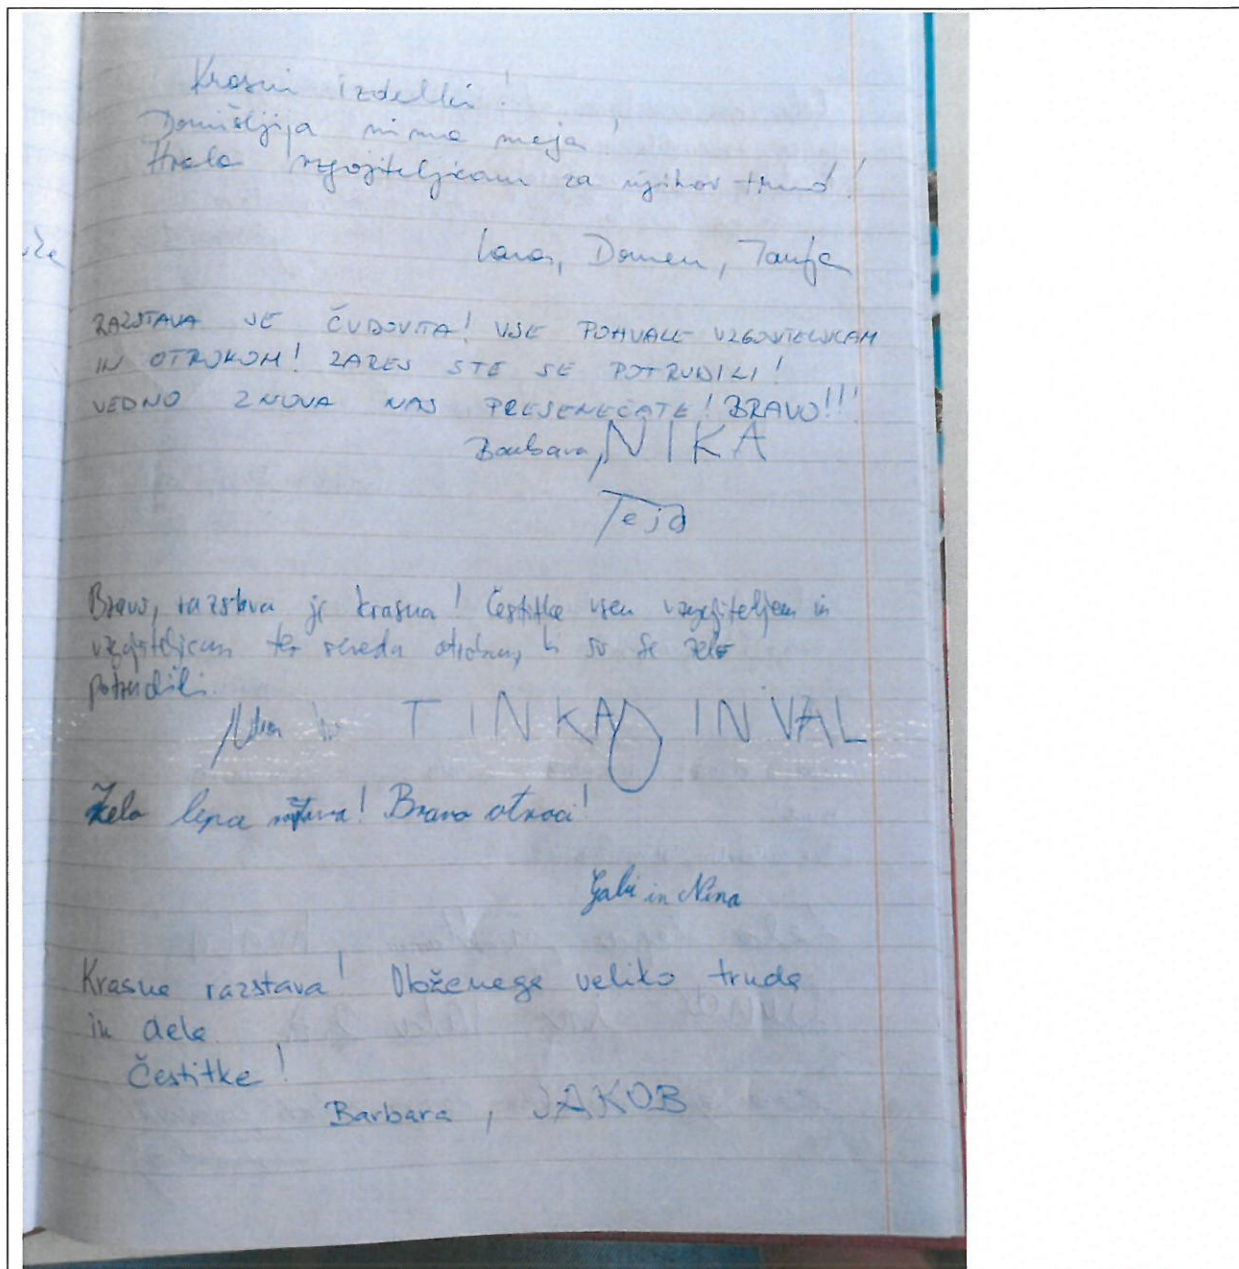 Krasni izdelki!
Domišljija nima meja!
Hvala vzgojiteljicam za njihov trud!
Lara, Domen, Tanja
RAZSTAVA JE ČUDOVITA! VSE POHVALE VZGOJITELJICAM
IN OTROKOM! ZARES STE SE POTRUDILI!
VEDNO ZNOVA NAS PRESENEČATE! BRAVO!!!
Barbara, NIKA
Teja
Bravo, razstava je krasna! Čestitke vsem vzgojiteljem in
vzgojiteljicam ter seveda otrokom, ki so se zelo
potrudili.
in TINKA IN VAL
Zelo lepa razstava! Bravo otroci!
Gabi in Nina
Krasna razstava! Vloženega veliko truda
in dela
Čestitke!
Barbara, JAKOB